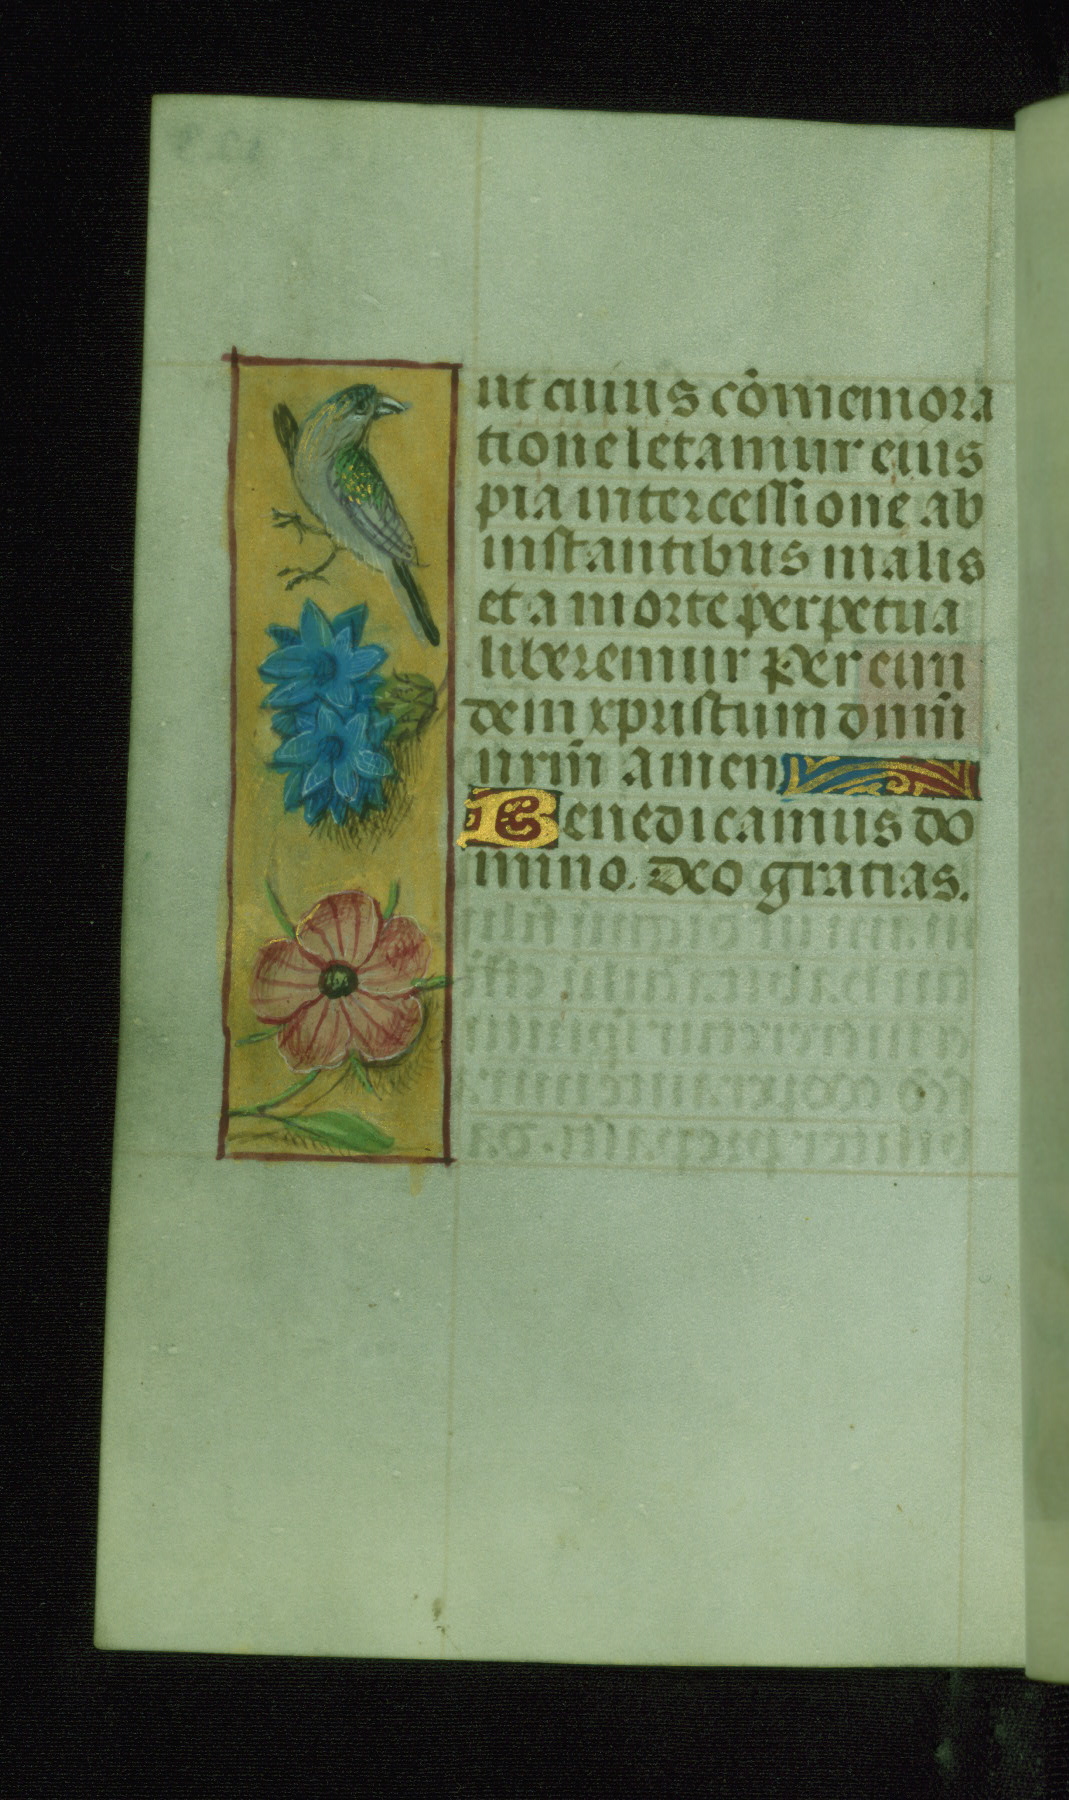 ut cuius cōmemora
tione letamur eius
pia intercessione ab
instantibus malis
et a morte perpetua
liberemur Per eun
dem xpristum dnm̄
nrm̄ Amen
Benedicamus do
mino. Deo gratias.